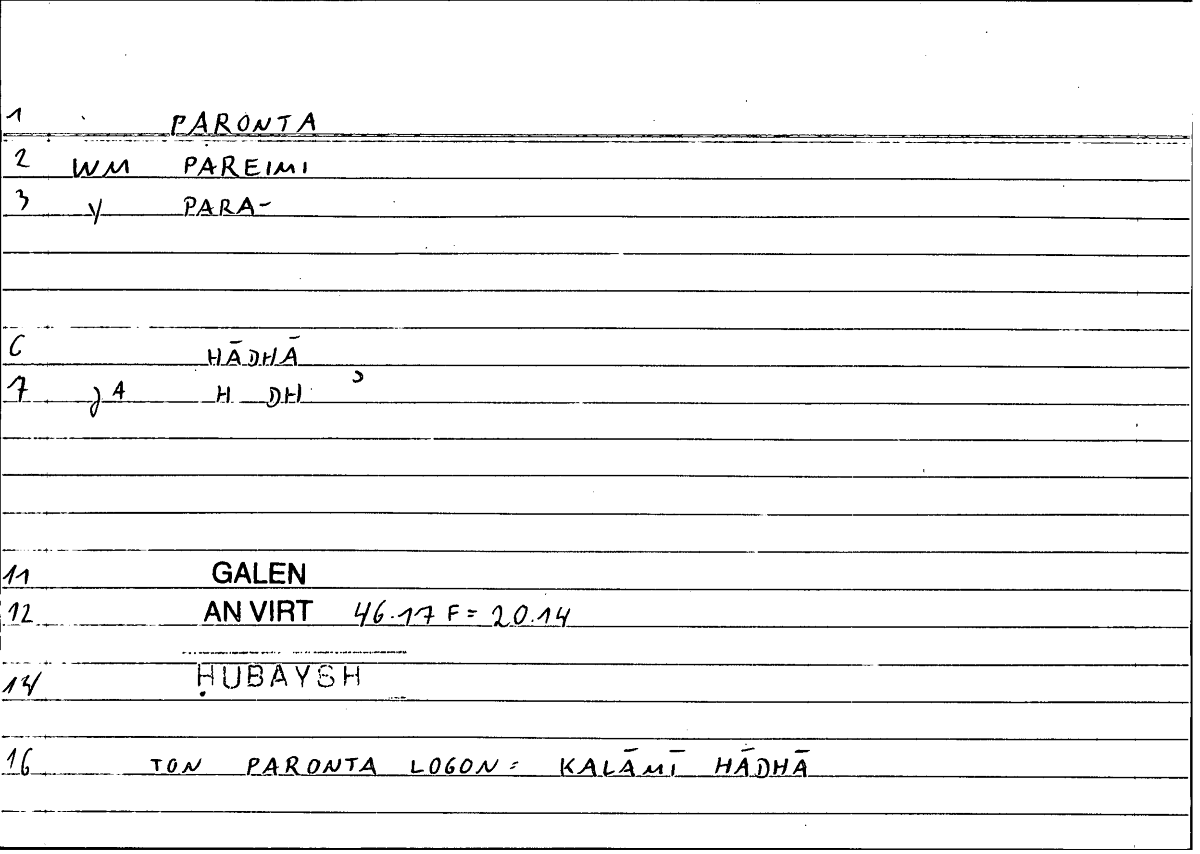 1 PARONTA
2 WM PAREIMI
3 Y PARA-
6 HĀDHĀ
7 JA H DH ʾ
11 GALEN
12 AN VIRT 46.17 F = 20.14
14 ḤUBAYSH
16 TON PARONTA LOGON = KALĀMĪ HĀDHĀ